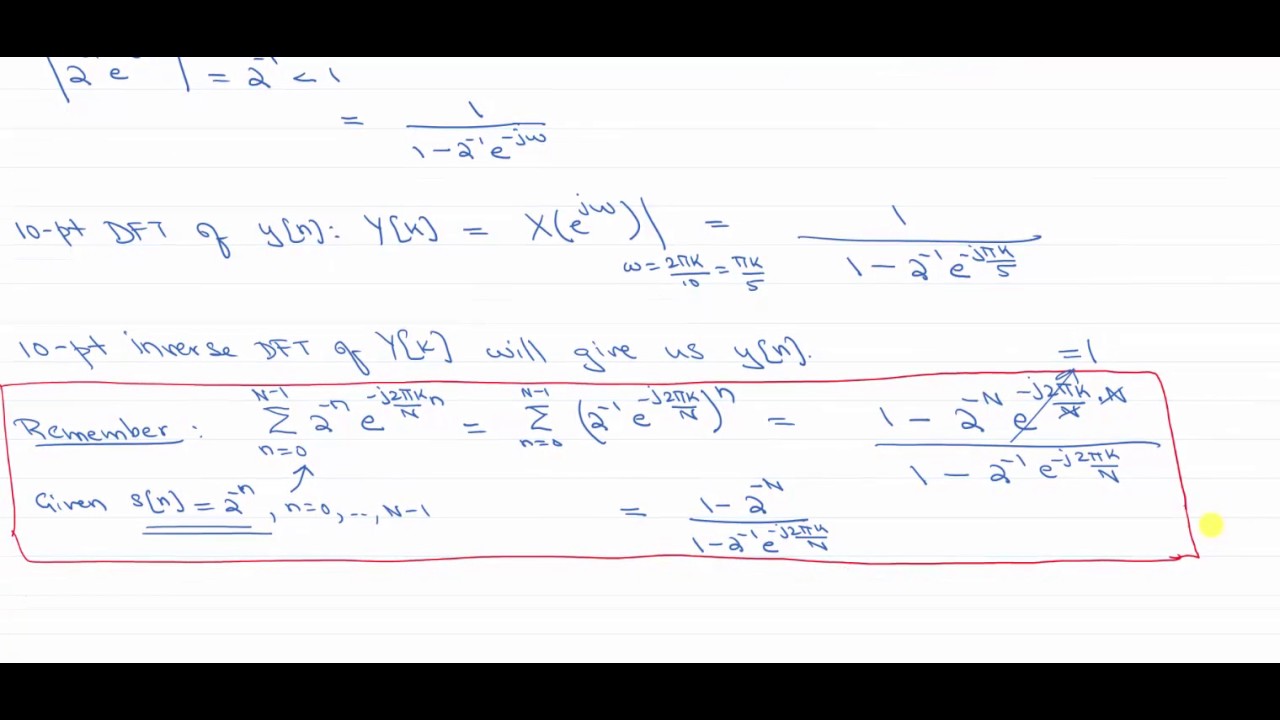 |2⁻¹ e | = 2⁻¹ < 1
= 1 / (1 − 2⁻¹e^(−jω))
10-pt DFT of y[n]: Y[k] = X(e^(jω))|_(ω = 2πk/10 = πk/5) = 1 / (1 − 2⁻¹e^(−jπk/5))
10-pt inverse DFT of Y[k] will give us y[n]. =1
Remember: ∑_(n=0)^(N−1) 2⁻ⁿ e^(−j2πk/N n) = ∑_(n=0)^(N−1) (2⁻¹ e^(−j2πk/N))ⁿ = (1 − 2^(−N) e^(−j2πk/N · N)) / (1 − 2⁻¹ e^(−j2πk/N))
Given s[n] = 2⁻ⁿ, n=0, .., N−1 = (1 − 2^(−N)) / (1 − 2⁻¹e^(−j2πk/N))